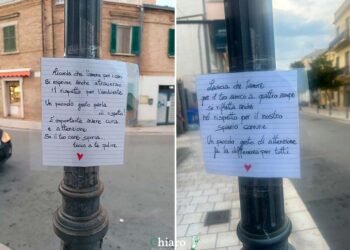 Ricorda che l'amore per i cani
si esprime anche attraverso
il rispetto per l'ambiente
Un piccolo gesto parla
di rispetto
È importante avere cura
e attenzione
Se il tuo cane sporca
tocca a te pulire
Lascia che l'amore
per il tuo amico a quattro zampe
si rifletta anche
nel rispetto per il nostro
spazio comune
Un piccolo gesto di attenzione
fa la differenza per tutti
Chiaro